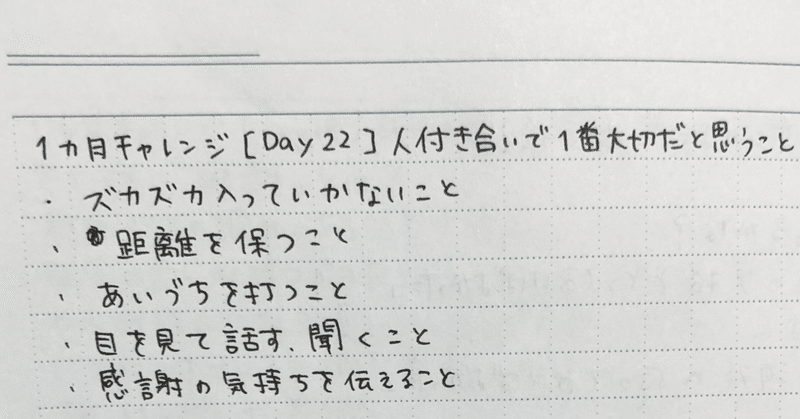 1ヵ月チャレンジ[Day 22]人付き合いで1番大切だと思うこと
・ズカズカ入っていかないこと
・距離を保つこと
・あいづちを打つこと
・目を見て話す、聞くこと
・感謝の気持ちを伝えること